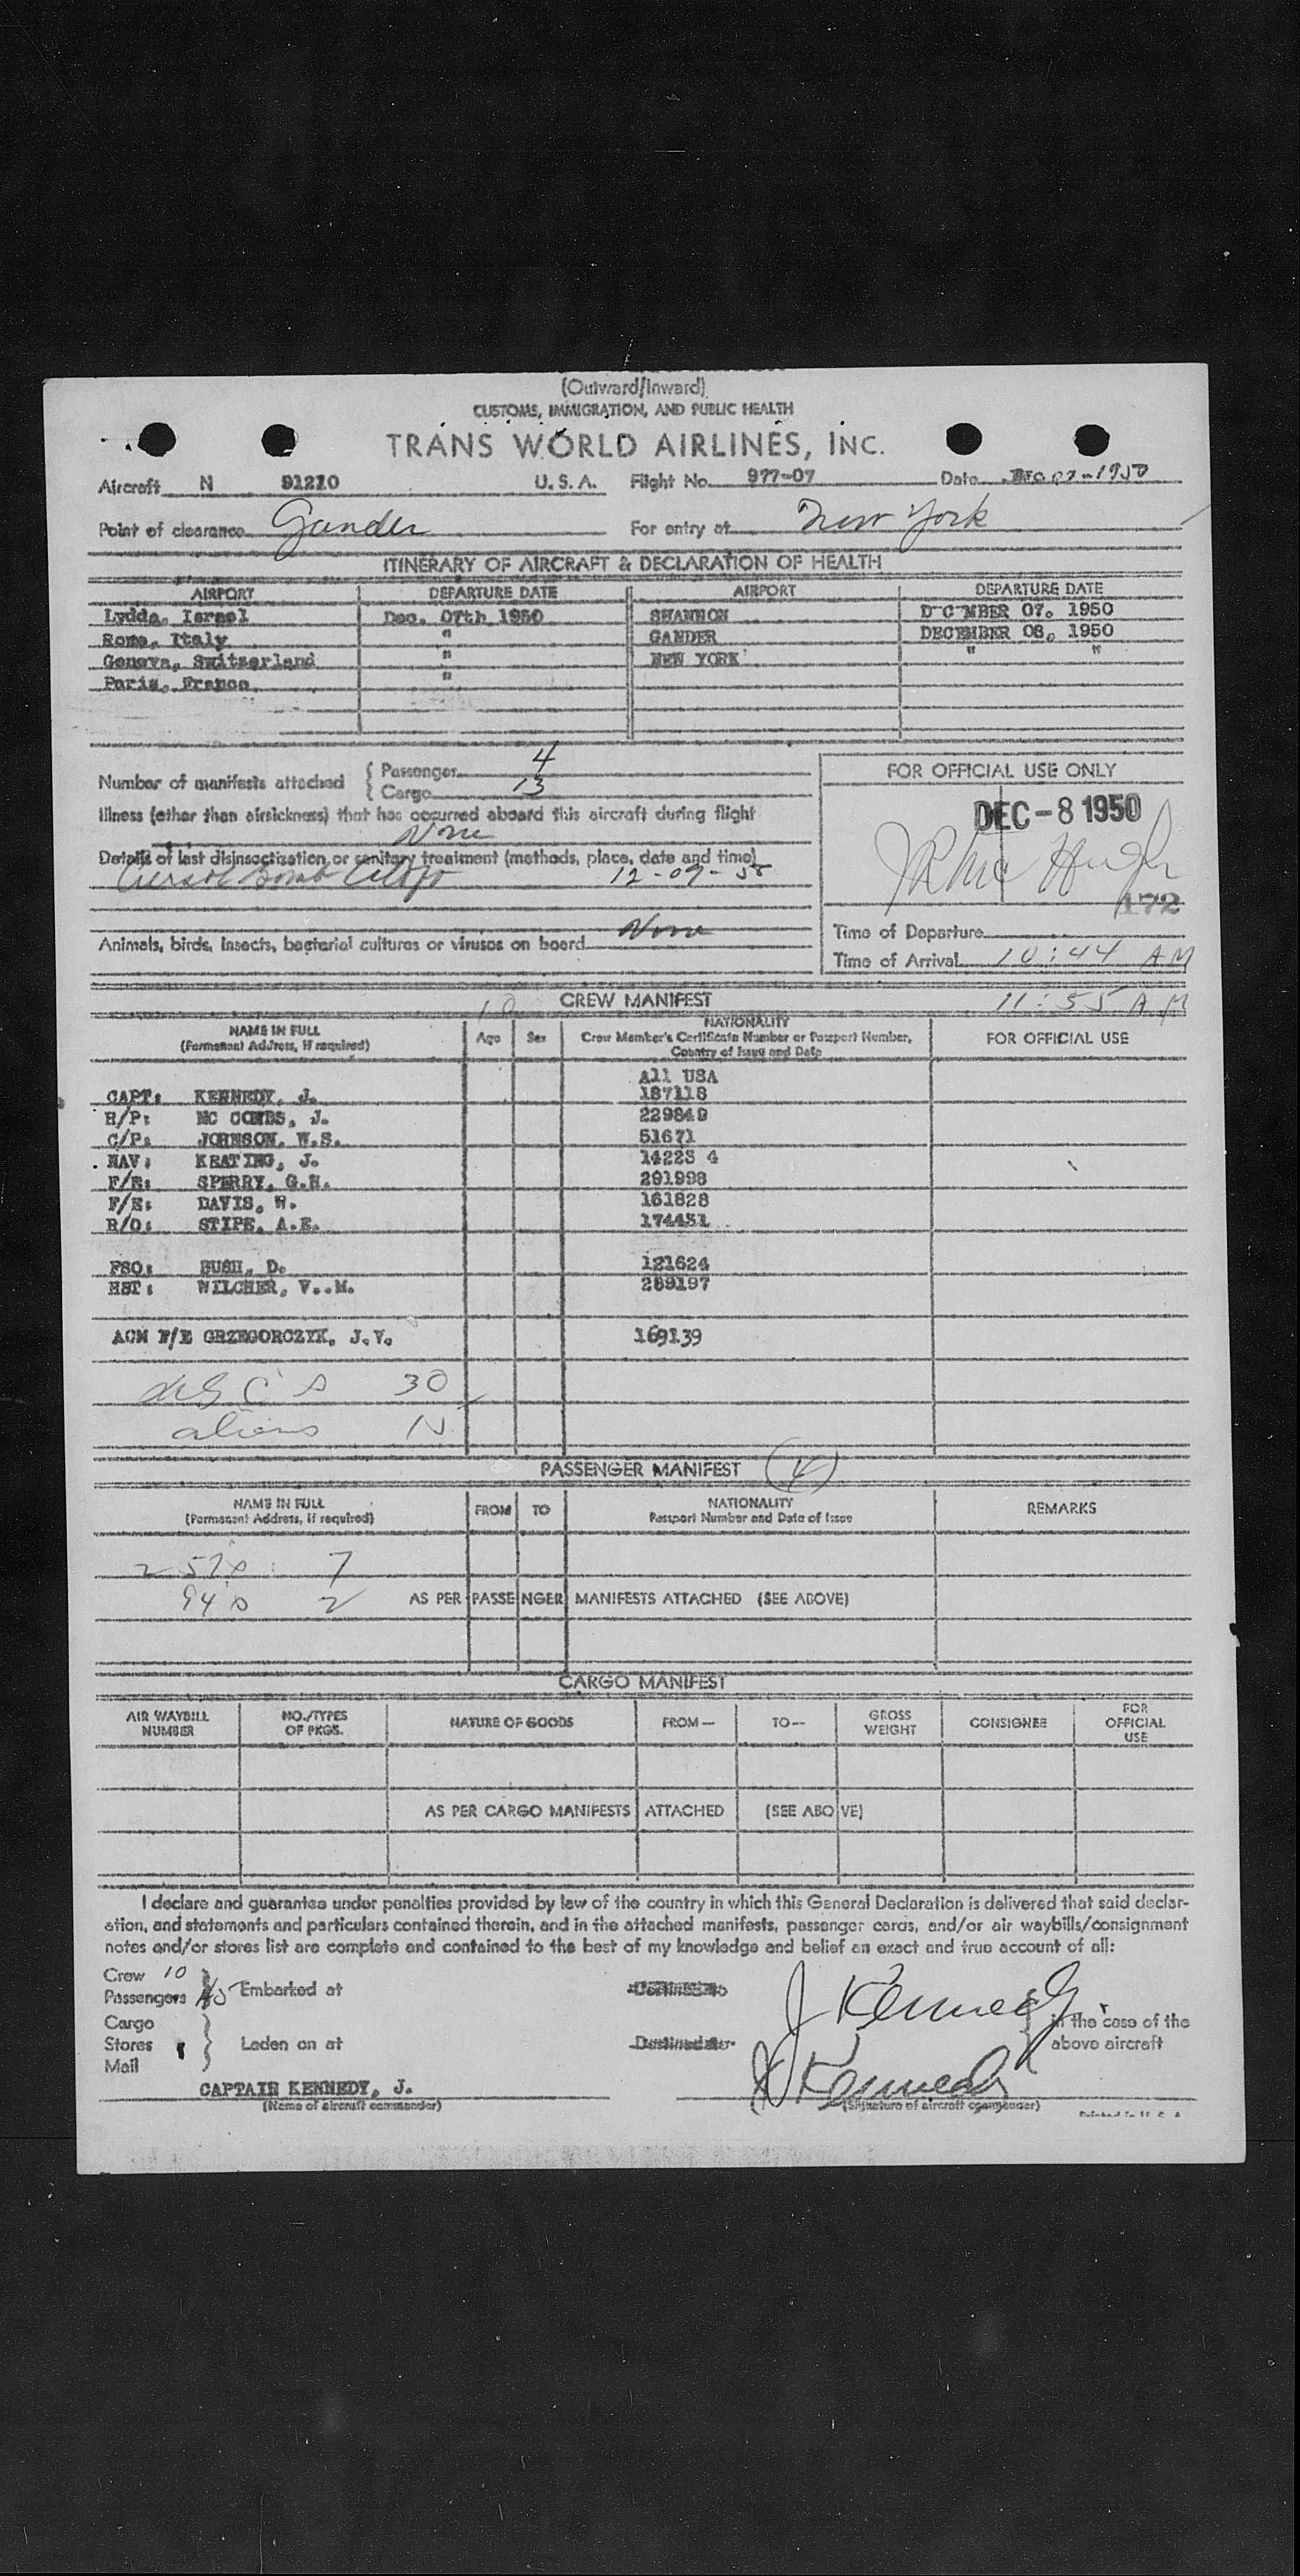 (Outward/Inward)
CUSTOMS, IMMIGRATION, AND PUBLIC HEALTH
TRANS WORLD AIRLINES, INC.
Aircraft N 91210 U.S.A. Flight No. 977-07 Date DEC 07-1950
Point of clearance Gander For entry at New York
ITINERARY OF AIRCRAFT & DECLARATION OF HEALTH
AIRPORT DEPARTURE DATE AIRPORT DEPARTURE DATE
Lydda, Israel Dec. 07th 1950 SHANNON D C MBER 07. 1950
Rome, Italy " GANDER DECEMBER 08, 1950
Geneva, Switzerland " NEW YORK " "
Paris, France "
Number of manifests attached { Passenger 4
{ Cargo 13
Illness (other than airsickness) that has occurred aboard this aircraft during flight
None
Details of last disinsectization or sanitary treatment (methods, place, date and time)
Aersol Bomb 12-07-50
Animals, birds, insects, bacterial cultures or viruses on board None
FOR OFFICIAL USE ONLY
DEC - 8 1950
172
Time of Departure
Time of Arrival 10:44 AM
11:55 AM
10 CREW MANIFEST
NAME IN FULL
(Permanent Address, if required)
Age Sex
NATIONALITY
Crew Member's Certificate Number or Passport Number,
Country of Issue and Date
FOR OFFICIAL USE
All USA
CAPT: KENNEDY, J. 187118
R/P: MC COMBS, J. 229849
C/P: JOHNSON, W.S. 51671
NAV: KEATING, J. 14223 4
F/E: SPERRY, G.H. 291998
F/E: DAVIS, W. 161828
R/O: STIPE, A.E. 174451
FSO: BUSH, D. 121624
HST: WILCHER, V..M. 289197
ACM F/E GRZEGORCZYK, J.V. 169139
USC s 30
aliens 15
PASSENGER MANIFEST (4)
NAME IN FULL
(Permanent Address, if required)
FROM TO
NATIONALITY
Passport Number and Date of Issue
REMARKS
257s 7
94 s 2 AS PER PASSENGER MANIFESTS ATTACHED (SEE ABOVE)
CARGO MANIFEST
AIR WAYBILL NUMBER
NO./TYPES OF PKGS.
NATURE OF GOODS
FROM—
TO—
GROSS WEIGHT
CONSIGNEE
FOR OFFICIAL USE
AS PER CARGO MANIFESTS ATTACHED (SEE ABOVE)
I declare and guarantee under penalties provided by law of the country in which this General Declaration is delivered that said declar-
ation, and statements and particulars contained therein, and in the attached manifests, passenger cards, and/or air waybills/consignment
notes and/or stores list are complete and contained to the best of my knowledge and belief an exact and true account of all:
Crew 10
Passengers 45 Embarked at
Cargo
Stores Laden on at
Mail
J Kennedy
in the case of the
above aircraft
CAPTAIN KENNEDY, J. J Kennedy
(Name of aircraft commander) (Signature of aircraft commander)
Printed in U. S. A.